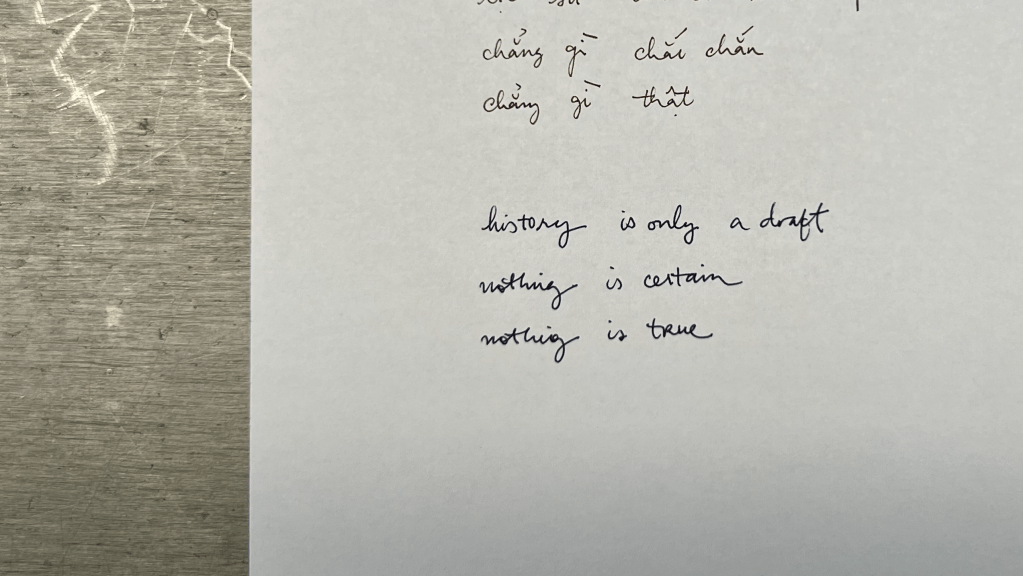 chẳng gì chắc chắn
chẳng gì thật
history is only a draft
nothing is certain
nothing is true